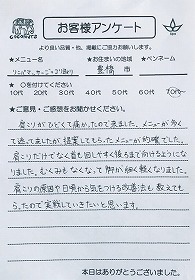 お客様アンケート
より良い品質・他、掲載にご協力お願いします。
★メニュー名
★お住まいの地域
★ペンネーム
リンパマッサージコリほぐし
豊橋 市
★○を付けてください
10代 20代 30代 40代 50代 60代 70代〜
★ご意見・ご感想をお聞かせください。
肩こりがひどくて痛かったので来ました。メニューが多く
て迷ってましたが提案してもらったメニューが的確でした。
肩こりだけでなく首も回しやすく後ろまで向けるようにな
りました。むくみもなくなって脚が細く軽くなりました。
肩こりの原因や日頃から気をつける改善法も教えても
らったので実戦していきたいと思います。
本日はありがとうございました。